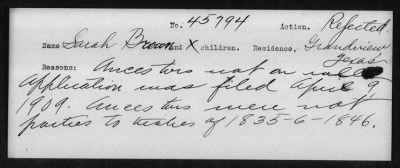 No. 45794 Action. Rejected.
Name Sarah Brown and X children. Residence, Grandview
Texas
Reasons: Ancestors not on rolls
Application was filed April 9,
1909. Ancestors were not
parties to treaties of 1835-6-1846.